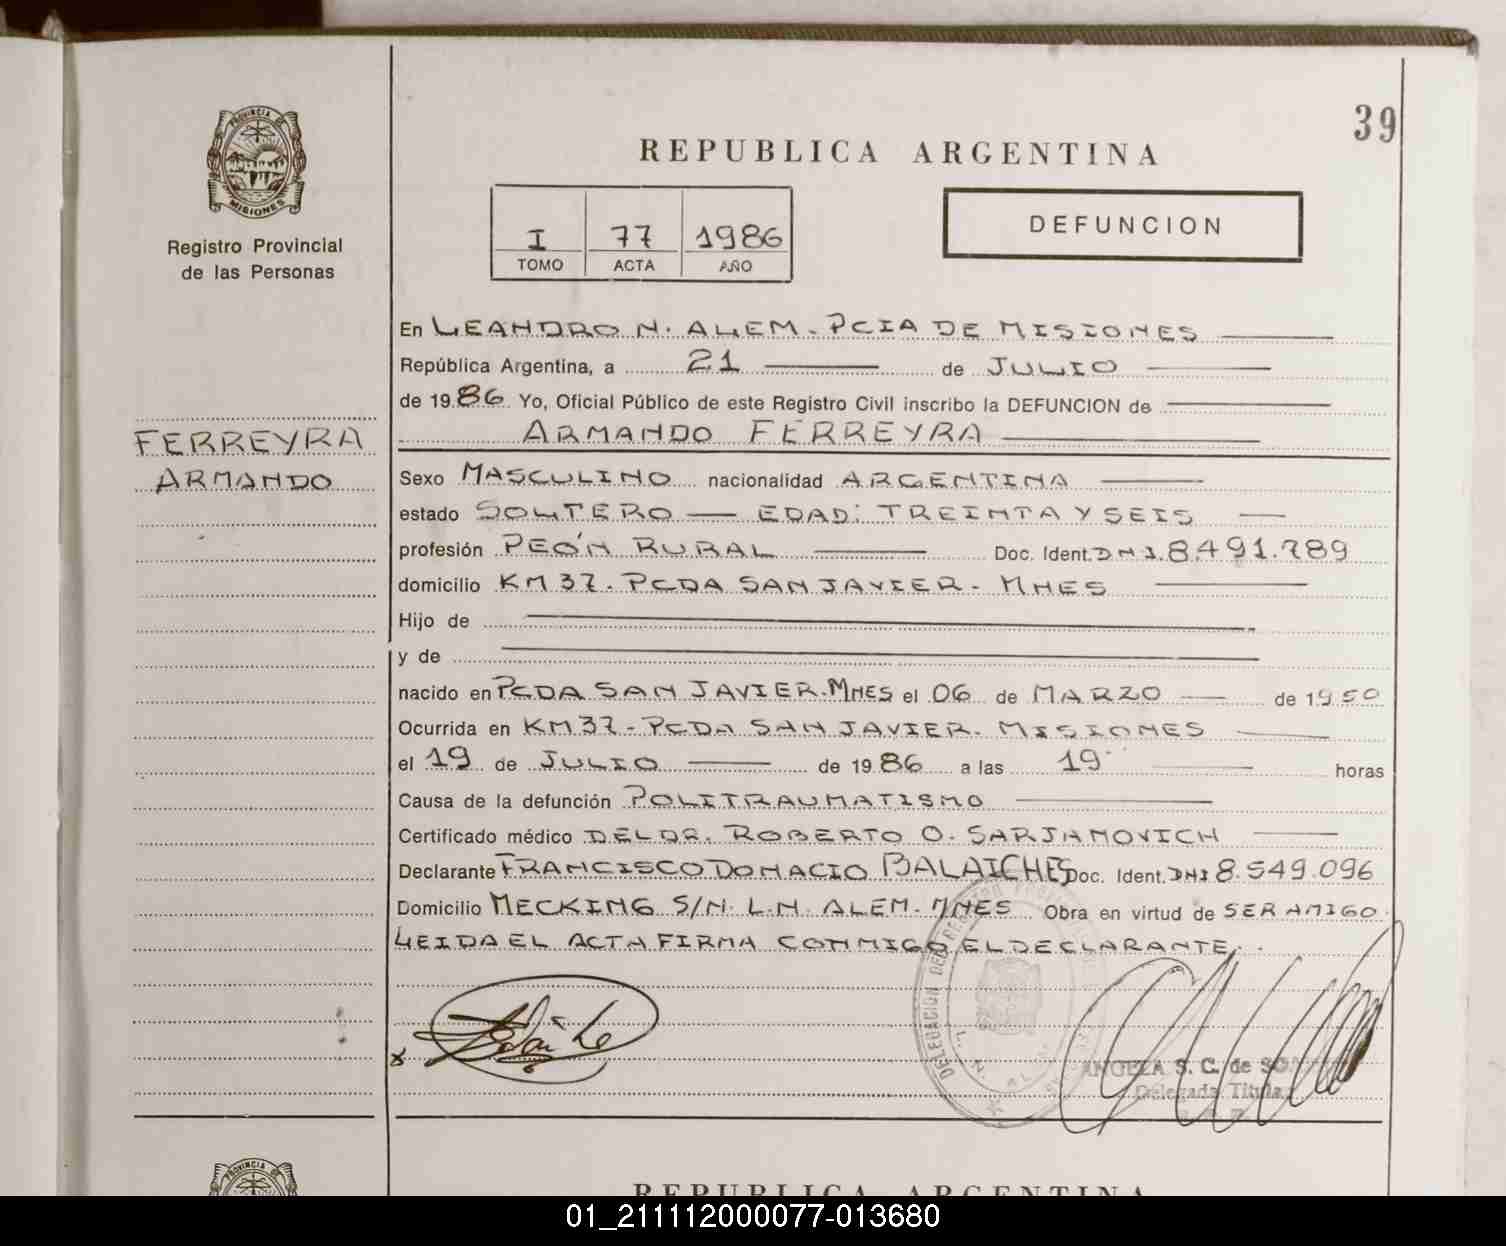 39
PROVINCIA DE
MISIONES
Registro Provincial
de las Personas
FERREYRA
ARMANDO
REPUBLICA ARGENTINA
I 77 1986
TOMO ACTA AÑO
DEFUNCION
En LEANDRO N. ALEM. PCIA DE MISIONES
República Argentina, a 21 de JULIO
de 1986 Yo, Oficial Público de este Registro Civil inscribo la DEFUNCION de
ARMANDO FERREYRA
Sexo MASCULINO nacionalidad ARGENTINA
estado SOLTERO — EDAD: TREINTA Y SEIS
profesión PEÓN RURAL Doc. Ident. DNI. 8.491.789
domicilio KM 37. PCDA SAN JAVIER - MNES
Hijo de
y de
nacido en PCDA SAN JAVIER. MNES el 06 de MARZO de 1950
Ocurrida en KM 37 - PCDA SAN JAVIER. MISIONES
el 19 de JULIO de 1986 a las 19 horas
Causa de la defunción POLITRAUMATISMO
Certificado médico DEL DR. ROBERTO O. SARJANOVICH
Declarante FRANCISCO DONACIO BALAICHES Doc. Ident. DNI 8.549.096
Domicilio MECKING S/N. L.N. ALEM. MNES Obra en virtud de SER AMIGO.
LEIDA EL ACTA FIRMA CONMIGO EL DECLARANTE.
DELEGACION DEL REGISTRO
L. N. ALEM
ANGELA S. C. de
Delegada Titular
PROVINCIA DE
REPUBLICA ARGENTINA
01_211112000077-013680